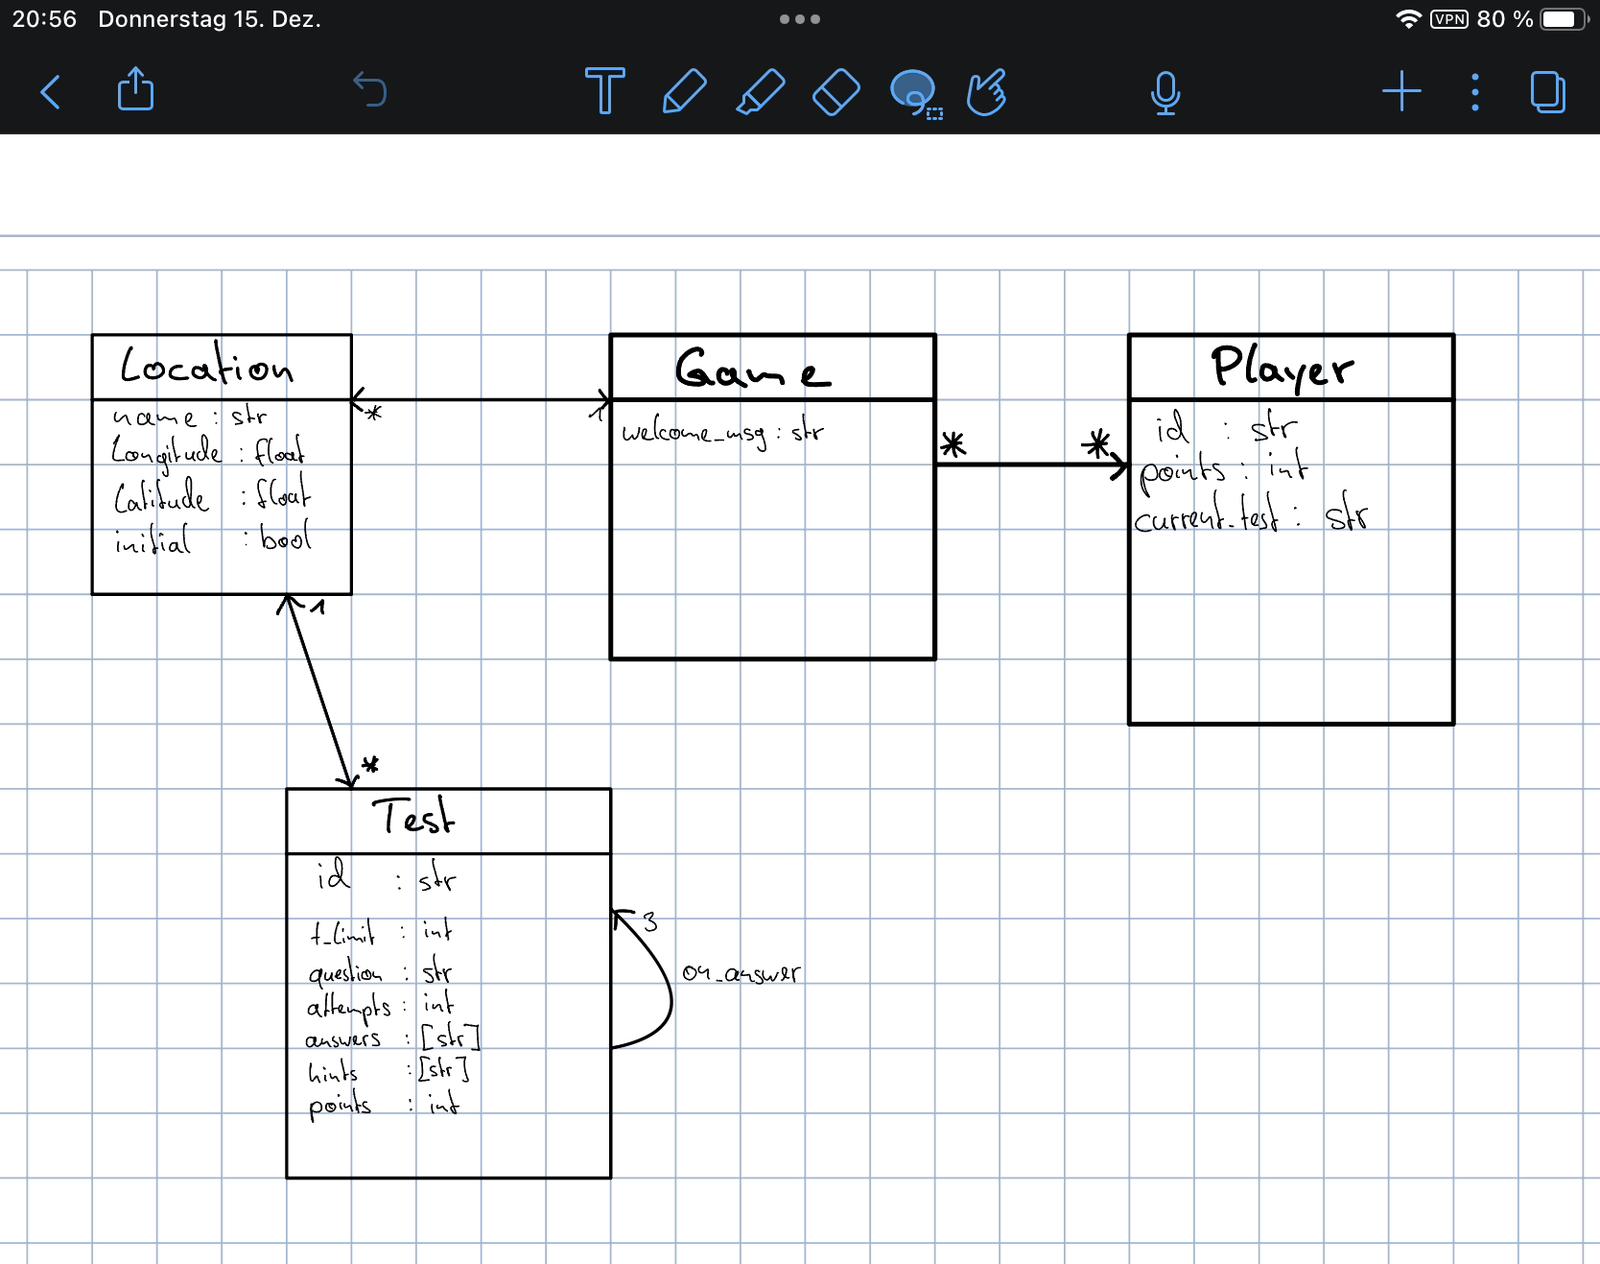 20:56 Donnerstag 15. Dez.
VPN 80 %
T
Location
name : str
Longitude : float
Latitude : float
initial : bool
*
1
Game
welcome_msg : str
*
*
Player
id : str
points : int
current_test : str
1
*
Test
id : str
t_limit : int
question : str
attempts : int
answers : [str]
hints : [str]
points : int
3
on_answer